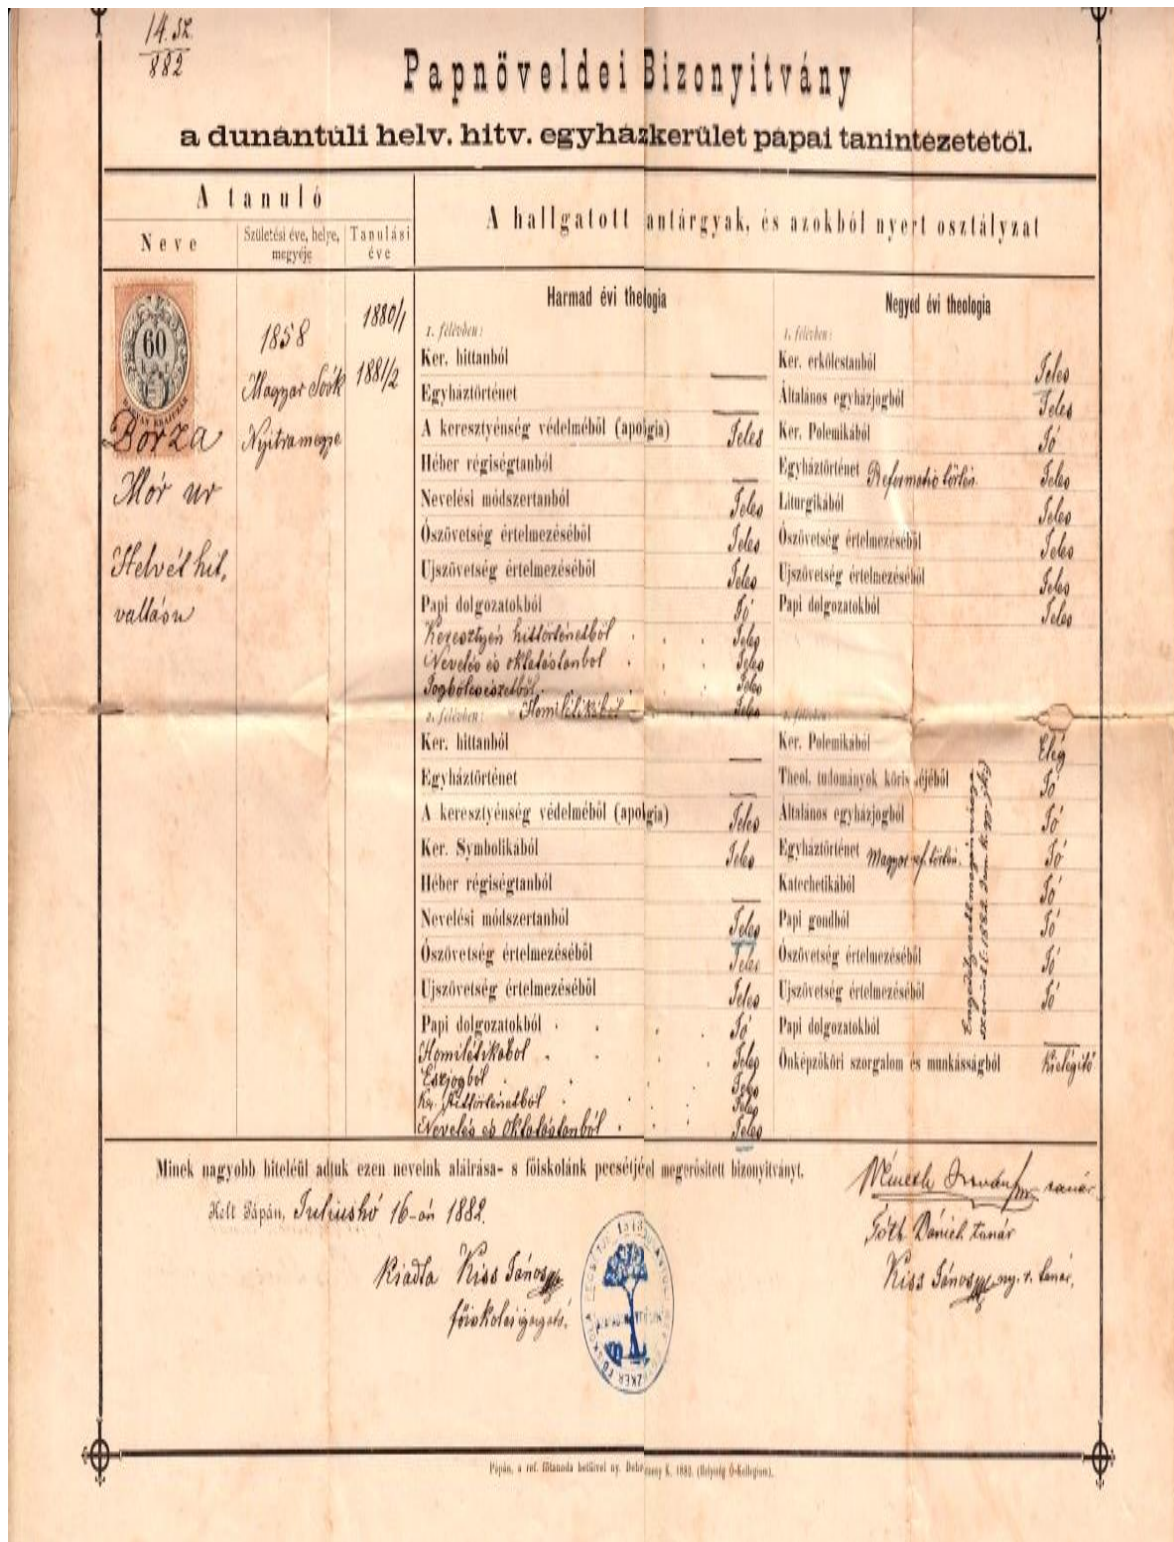 14. sz.
882
Papnöveldei Bizonyitvány
a dunántúli helv. hitv. egyházkerület pápai tanintézetétől.
A tanuló
A hallgatott antárgyak, és azokból nyert osztályzat
Neve
Születési éve, helye, megyéje
Tanulási éve
60
Borza
Mór ur
Helvét hit.
vallásu
1858
Magyar Soók
Nyitramegye
1880/1
1881/2
Harmad évi thelogia
1. félévben:
Ker. hittanból —
Egyháztörténet —
A keresztyénség védelméből (apolgia) Jeles
Héber régiségtanból —
Nevelési módszertanból Jeles
Ószövetség értelmezéséből Jeles
Ujszövetség értelmezéséből Jeles
Papi dolgozatokból Jó
Keresztyén hittörténetből . . . Jeles
Nevelés és oktatástanbol . . . Jeles
Jogbölcsészetből . . . Jeles
2. félévben: Homilétikából Jeles
Ker. hittanból —
Egyháztörténet —
A keresztyénség védelméből (apolgia) Jeles
Ker. Symbolikából Jeles
Héber régiségtanból —
Nevelési módszertanból Jeles
Ószövetség értelmezéséből Jeles
Ujszövetség értelmezéséből Jeles
Papi dolgozatokból . . . . Jó
Homilétikából . . . . Jeles
Észjogból . . . . Jeles
Ker. Hittörténetből . . . Jeles
Nevelés és Oktatástanból . . . Jeles
Negyed évi theologia
1. félévben:
Ker. erkölcstanból Jeles
Általános egyházjogból Jeles
Ker. Polemikából Jó
Egyháztörténet Reformatio történ. Jeles
Liturgikából Jeles
Ószövetség értelmezéséből Jeles
Ujszövetség értelmezéséből Jeles
Papi dolgozatokból Jeles
2. félévben:
Ker. Polemikából Elég
Theol. tudományok köris éjéből Jó
Általános egyházjogból Jó
Egyháztörténet Magyar ref. történ. Jó
Katechetikából Jó
Papi gondból Jó
Ószövetség értelmezéséből Jó
Ujszövetség értelmezéséből Jó
Papi dolgozatokból —
Önképzőköri szorgalom és munkásságból Kielégitő
szerint 1882
Minek nagyobb hiteléül adtuk ezen neveink aláirása- s főiskolánk pecsétjéel megerősitett bizonyitványt.
Kelt Pápán, Juliushó 16-án 1882.
Kiadta Kiss János
főiskolai igazgató.
Németh István tanár
Tóth Dániel tanár
Kiss János ny. r. tanár.
Pápán, a ref. főtanoda betűivel ny. 1882. (Helység Ó-Kollegium).